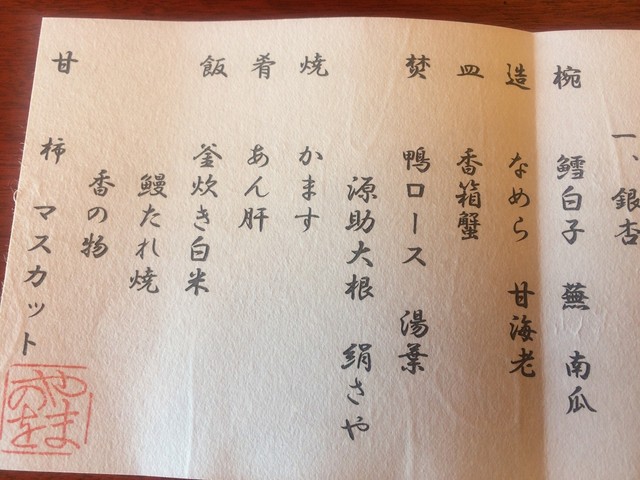 一、銀杏
椀 鱈白子 蕪 南瓜
造 なめら 甘海老
皿 香箱蟹
焚 鴨ロース 湯葉
源助大根 絹さや
焼 かます
肴 あん肝
飯 釜炊き白米
鰻たれ焼
香の物
甘 柿 マスカット